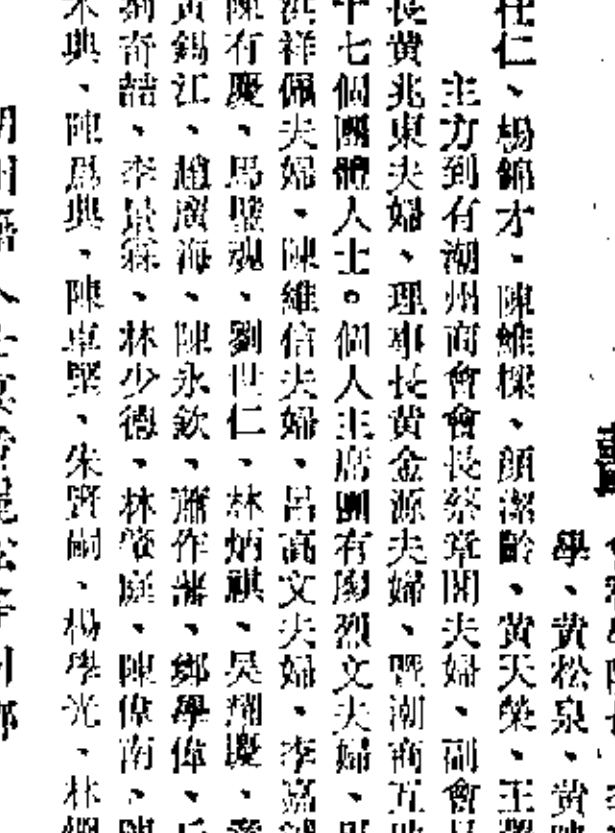 學、黃松泉、黃
桂仁、楊錦才、陳維樑、顏潔齡、黃天榮、王
主方到有潮州商會會長蔡章閣夫婦、副會長
長黃兆東夫婦、理事長黃金源夫婦、暨潮商互
十七個團體人士。個人主席則有廖烈文夫婦、
洪祥佩夫婦、陳維信夫婦、呂高文夫婦、李嘉
陳有慶、馬璧魂、劉世仁、林炳騏、吳
黃錫江、趙廣海、陳永欽、蕭作 、鄭學偉、
劉奇喆、李景森、林少德、林肇庭、陳偉南、陳
典、陳爲典、陳卓堅、朱賢嗣、楊學光、林